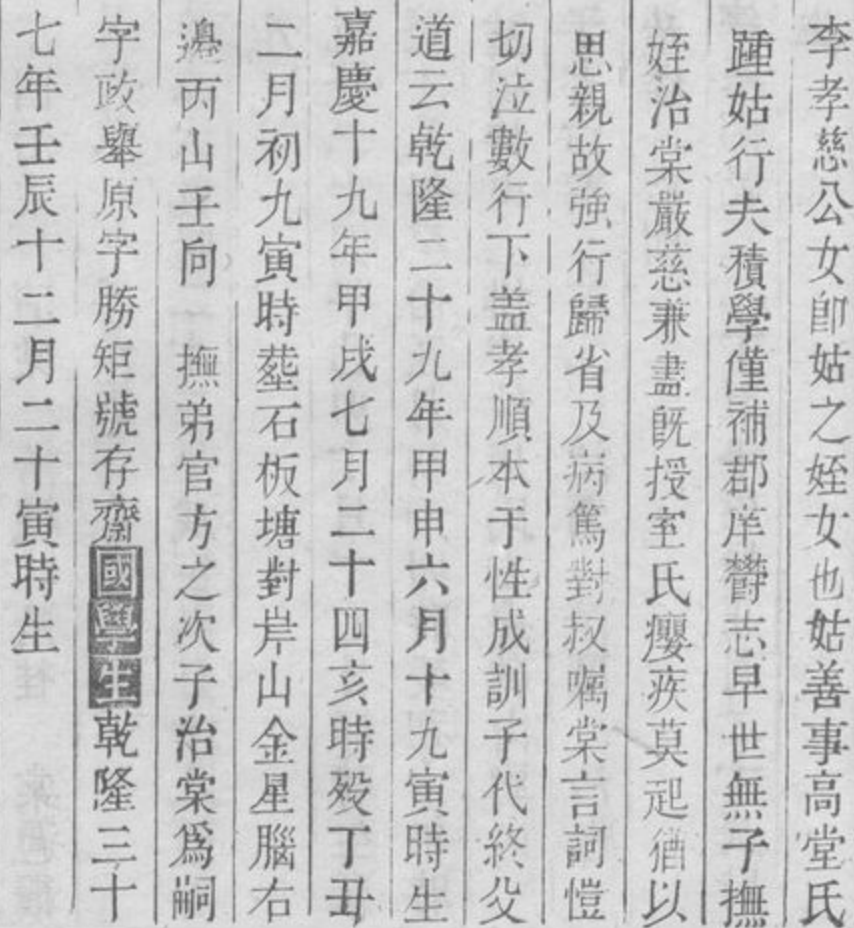 李孝慈公女卽姑之姪女也姑善事高堂氏
踵姑行夫積學僅補郡庠欝志早世無子撫
姪治棠嚴慈兼盡旣授室氏癭疾莫起猶以
思親故強行歸省及病篤對叔囑棠言詞愷
切泣數行下盖孝順本于性成訓子代終父
道云乾隆二十九年甲申六月十九寅時生
嘉慶十九年甲戌七月二十四亥時殁丁丑
二月初九寅時塟石板塘對岸山金星腦右
邊丙山壬向 撫弟官方之次子治棠爲嗣
字政舉原字勝矩號存齋國學生乾隆三十
七年壬辰十二月二十寅時生